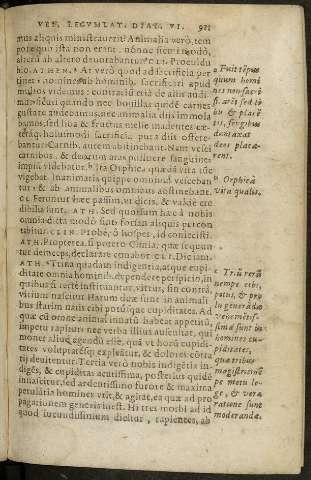 VEL LEGVMLAT. DIAL. VI. 921
mus aliquis ministrauerit? Animalia verò, tem
pore quo ista non erant, nónne sicut modò,
alterū ab altero deuorabantur? CLI. Procul du
bio. ATHEN. At verò quod ad sacrificia per
tinet: homines ab hominib. sacrificari apud
multos videmus: contrà ... etiā de alijs audi-
mus ... quando nec bouillas quidē carnes
gustare audebamus, nec animalia dijs immola
bamus, sed
 placentas & fructus melle madentes cæ-
teráq; huiusmodi sacrificia pura diis offere-
bantur: Carnib. autem abstinebant. Nam vesci
carnibus, & deorum aras polluere sanguine
impiū videbatur. Ita Orphica quædā vita tūc
vigebat. Inanimatis quippe omnibus vesceban
tur, & ab animalibus omnibus abstinebant.
CLI. Feruntur hæc passim, vt dicis, & valde cre
dibilia sunt. ATH. Sed quorsum hæc à nobis
omnia dicta modò sunt? forsan aliquis percon
tabitur. CLIN. Probè, ô hospes, id coniecisti.
ATH. Propterea, si potero Clinia, quæ sequun
tur deinceps, declarare conabor. CLI. Dic iam.
ATH. Trina quadam indigentia, atque cupi-
ditate omnia hominib. ex pendere perspicio, in
quibus si rectè instituantur, virtus: sin contrà
vitium nascitur. Harum duæ sunt in animali
bus statim natis cibi potúsque cupiditates. Ad
quæ cū omne animal innatū habeat appetitū,
impetu rapitur: nec verba illius auscultat, qui
moneat aliud agendū esse, quā vt horū cupidi-
tates voluptatésq; expleātur, & dolores cūcta
tij deuitentur. Tertia verò nobis indigētia in-
digēs, & cupiditas acutissima, posterius quidē
innascitur, sed ardentissimo furore & maxima
petulātia homines vrit, & agitat, ea quæ ad pro
pagationem generis incest. Hi tres morbi ad id
quod iucundissimum dicitur, rapientes, ab
Fuit tēpus
quum homi
nes non sacri
fi. arēt sed ti
bu & placē
tis, frugibus
duntaxat
deos placa-
rent.
Orphica
vita qualis.
Trinā verā
nempe cibi,
potus, & pro
pagenerādia
vehemētis-
sima sunt in
homines cu-
piditates,
quæ tribus
magistrem
pe metu le-
ge, & vera
ratione sunt
moderandæ.